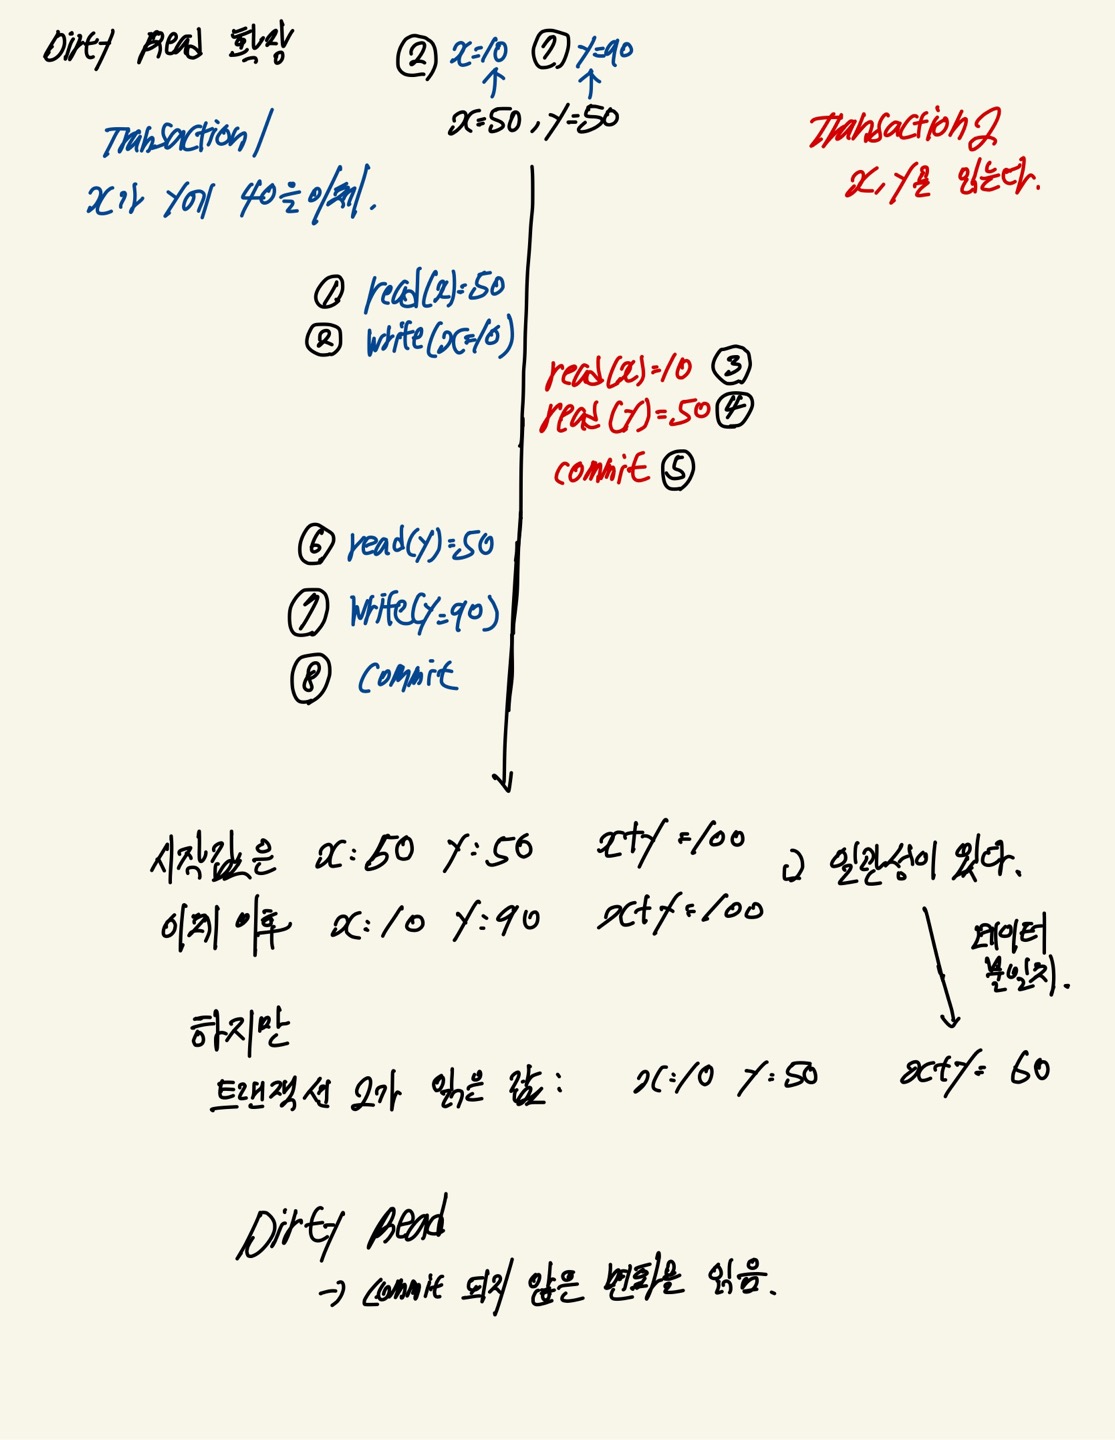 Dirty Read 확장
② x=10 ⑦ y=90
↑ ↑
x=50, y=50
Transaction 1
x가 y에 40을 이체.
Transaction 2
x, y를 읽는다.
① read(x)=50
② write(x=10)
read(x)=10 ③
read(y)=50 ④
commit ⑤
⑥ read(y)=50
⑦ write(y=90)
⑧ commit
시작값은 x:50 y:50 x+y=100
이체 이후 x:10 y:90 x+y=100
일관성이 있다.
데이터
불일치.
하지만
트랜잭션 2가 읽은 값: x:10 y:50 x+y= 60
Dirty Read
→ commit 되지 않은 변화를 읽음.